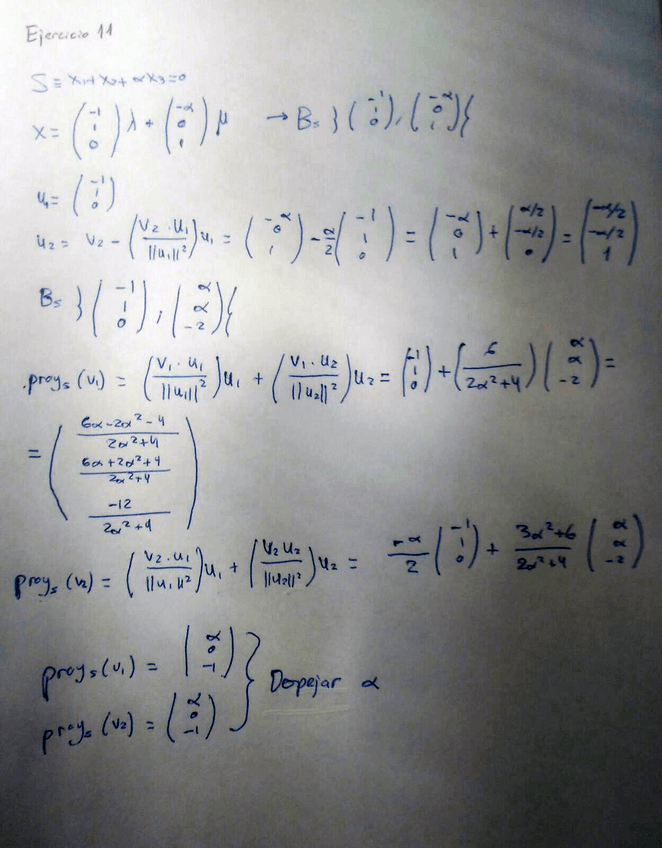 Ejercicio 11
S ≡ x₁+x₂+αx₃=0
X = (-1 1 0) λ + (-α 0 1) μ → Bs } (-1 1 0), (-α 0 1) {
u₁ = (-1 1 0)
u₂ = v₂ - (v₂·u₁ / ||u₁||²) u₁ = (-α 0 1) - α/2 (-1 1 0) = (-α 0 1) + (α/2 -α/2 0) = (-α/2 -α/2 1)
Bs } (-1 1 0), (α α -2) {
.proys (v₁) = (v₁·u₁ / ||u₁||²) u₁ + (v₁·u₂ / ||u₂||²) u₂ = (-1 1 0) + (6 / 2α²+4) (α α -2) =
= (6α-2α²-4 / 2α²+4 6α+2α²+4 / 2α²+4 -12 / 2α²+4)
proys (v₂) = (v₂·u₁ / ||u₁||²) u₁ + (v₂ u₂ / ||u₂||²) u₂ = -α/2 (-1 1 0) + 3α²+6 / 2α²+4 (α α -2)
proys (v₁) = (α 0 -1)
proys (v₂) = (α 0 -1) } Despejar α